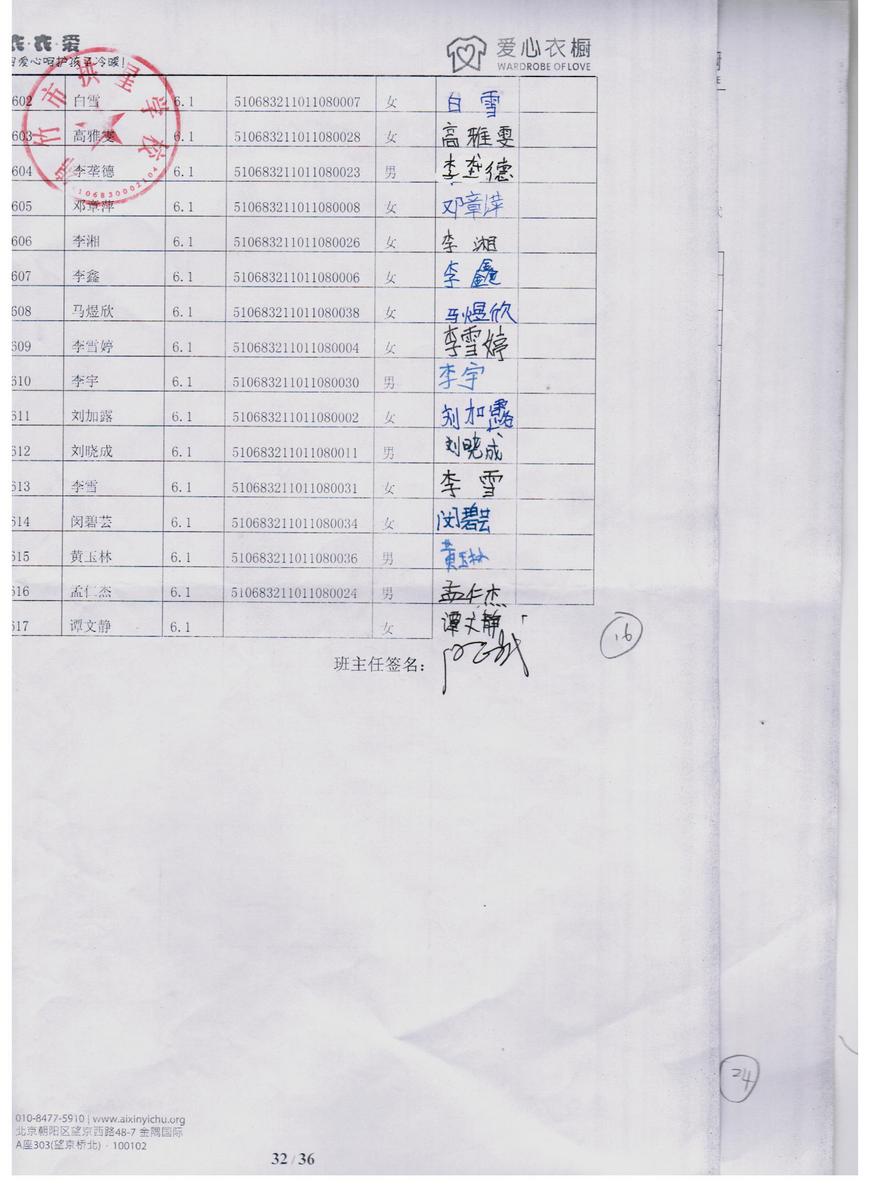 衣·衣·爱
爱心衣橱
用爱心呵护孩子冷暖!
WARDROBE OF LOVE
竹市拱星学校
5106830002104
602 白雪 6.1 510683211011080007 女 白雪
603 高雅雯 6.1 510683211011080028 女 高雅雯
604 李垄德 6.1 510683211011080023 男 李垄德
605 邓章萍 6.1 510683211011080008 女 邓章萍
606 李湘 6.1 510683211011080026 女 李湘
607 李鑫 6.1 510683211011080006 女 李鑫
608 马煜欣 6.1 510683211011080038 女 马煜欣
609 李雪婷 6.1 510683211011080004 女 李雪婷
610 李宇 6.1 510683211011080030 男 李宇
611 刘加露 6.1 510683211011080002 女 刘加露
612 刘晓成 6.1 510683211011080011 男 刘晓成
613 李雪 6.1 510683211011080031 女 李雪
614 闵碧芸 6.1 510683211011080034 女 闵碧芸
615 黄玉林 6.1 510683211011080036 男 黄玉林
616 孟仁杰 6.1 510683211011080024 男 孟仁杰
617 谭文静 6.1 女 谭文静
16
班主任签名:
24
010-8477-5910 | www.aixinyichu.org
北京朝阳区望京西路48-7 金隅国际
A座303(望京桥北) · 100102
32 / 36